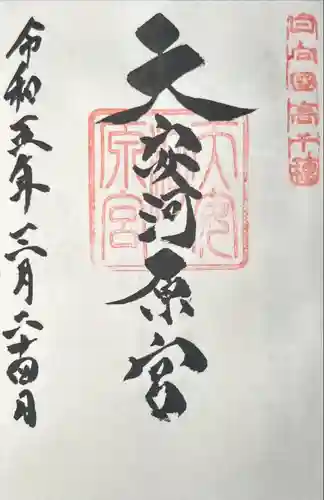 日向國高千穂
天安河原宮
令和五年三月二十四日